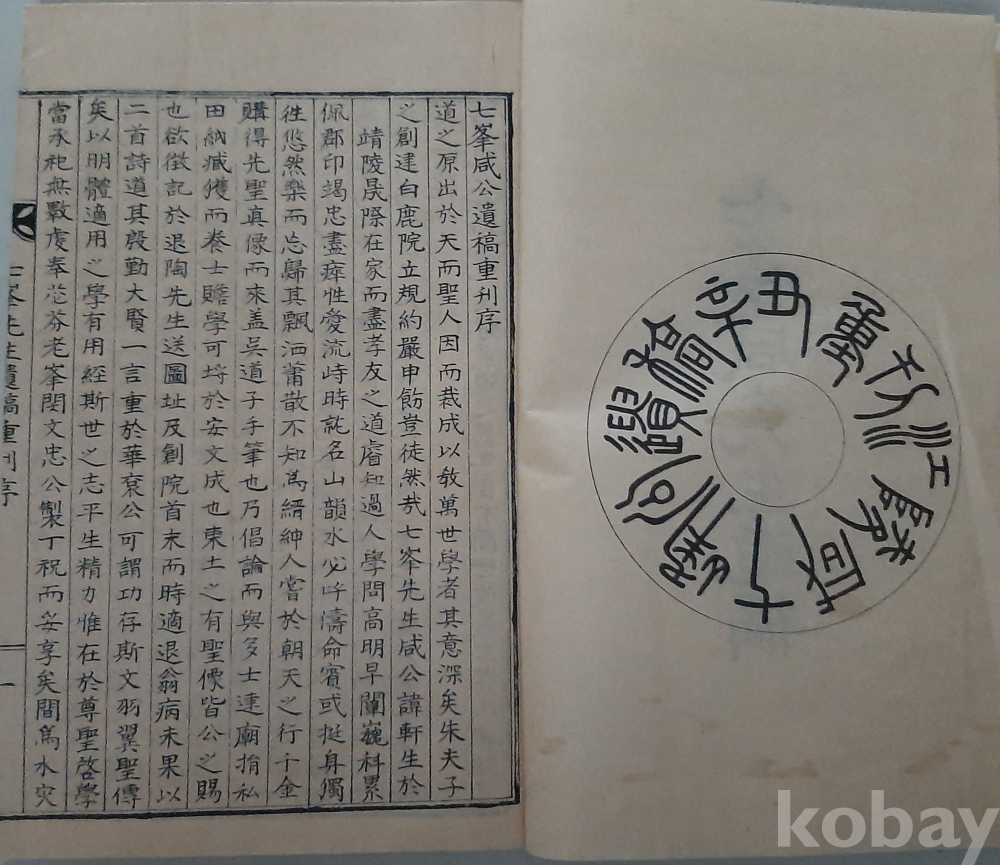 七峯咸公遺稿重刋序
道之原出於天而聖人因而裁成以敎萬世學者其意深矣朱夫子
之創建白鹿院立規約嚴申飭豈徒然哉七峯先生咸公諱軒生於
靖陵晟際在家而盡孝友之道睿知過人學問高明早闡巍科累
佩郡印竭忠盡瘁性愛流峙時訪名山韻水必呼儔命賓或挺身獨
徃悠然樂而忘歸其飄洒蕭散不知爲縉紳人嘗於朝天之行千金
購得先聖眞像而來盖吳道子手筆也乃倡論而與多士建廟捐私
田納臧獲而養士贍學可埒於安文成也東土之有聖像皆公之賜
也欲徵記於退陶先生送圖址及創院首末而時適退翁病未果以
二首詩道其殷勤大賢一言重於華衮公可謂功存斯文羽翼聖傳
矣以明體適用之學有用經斯世之志平生精力惟在於尊聖啓學
當承祀無斁虔奉苾芬老峯閔文忠公製丁祝而妥享矣間爲水灾
七峯先生遺稿重刋序
一
kobay